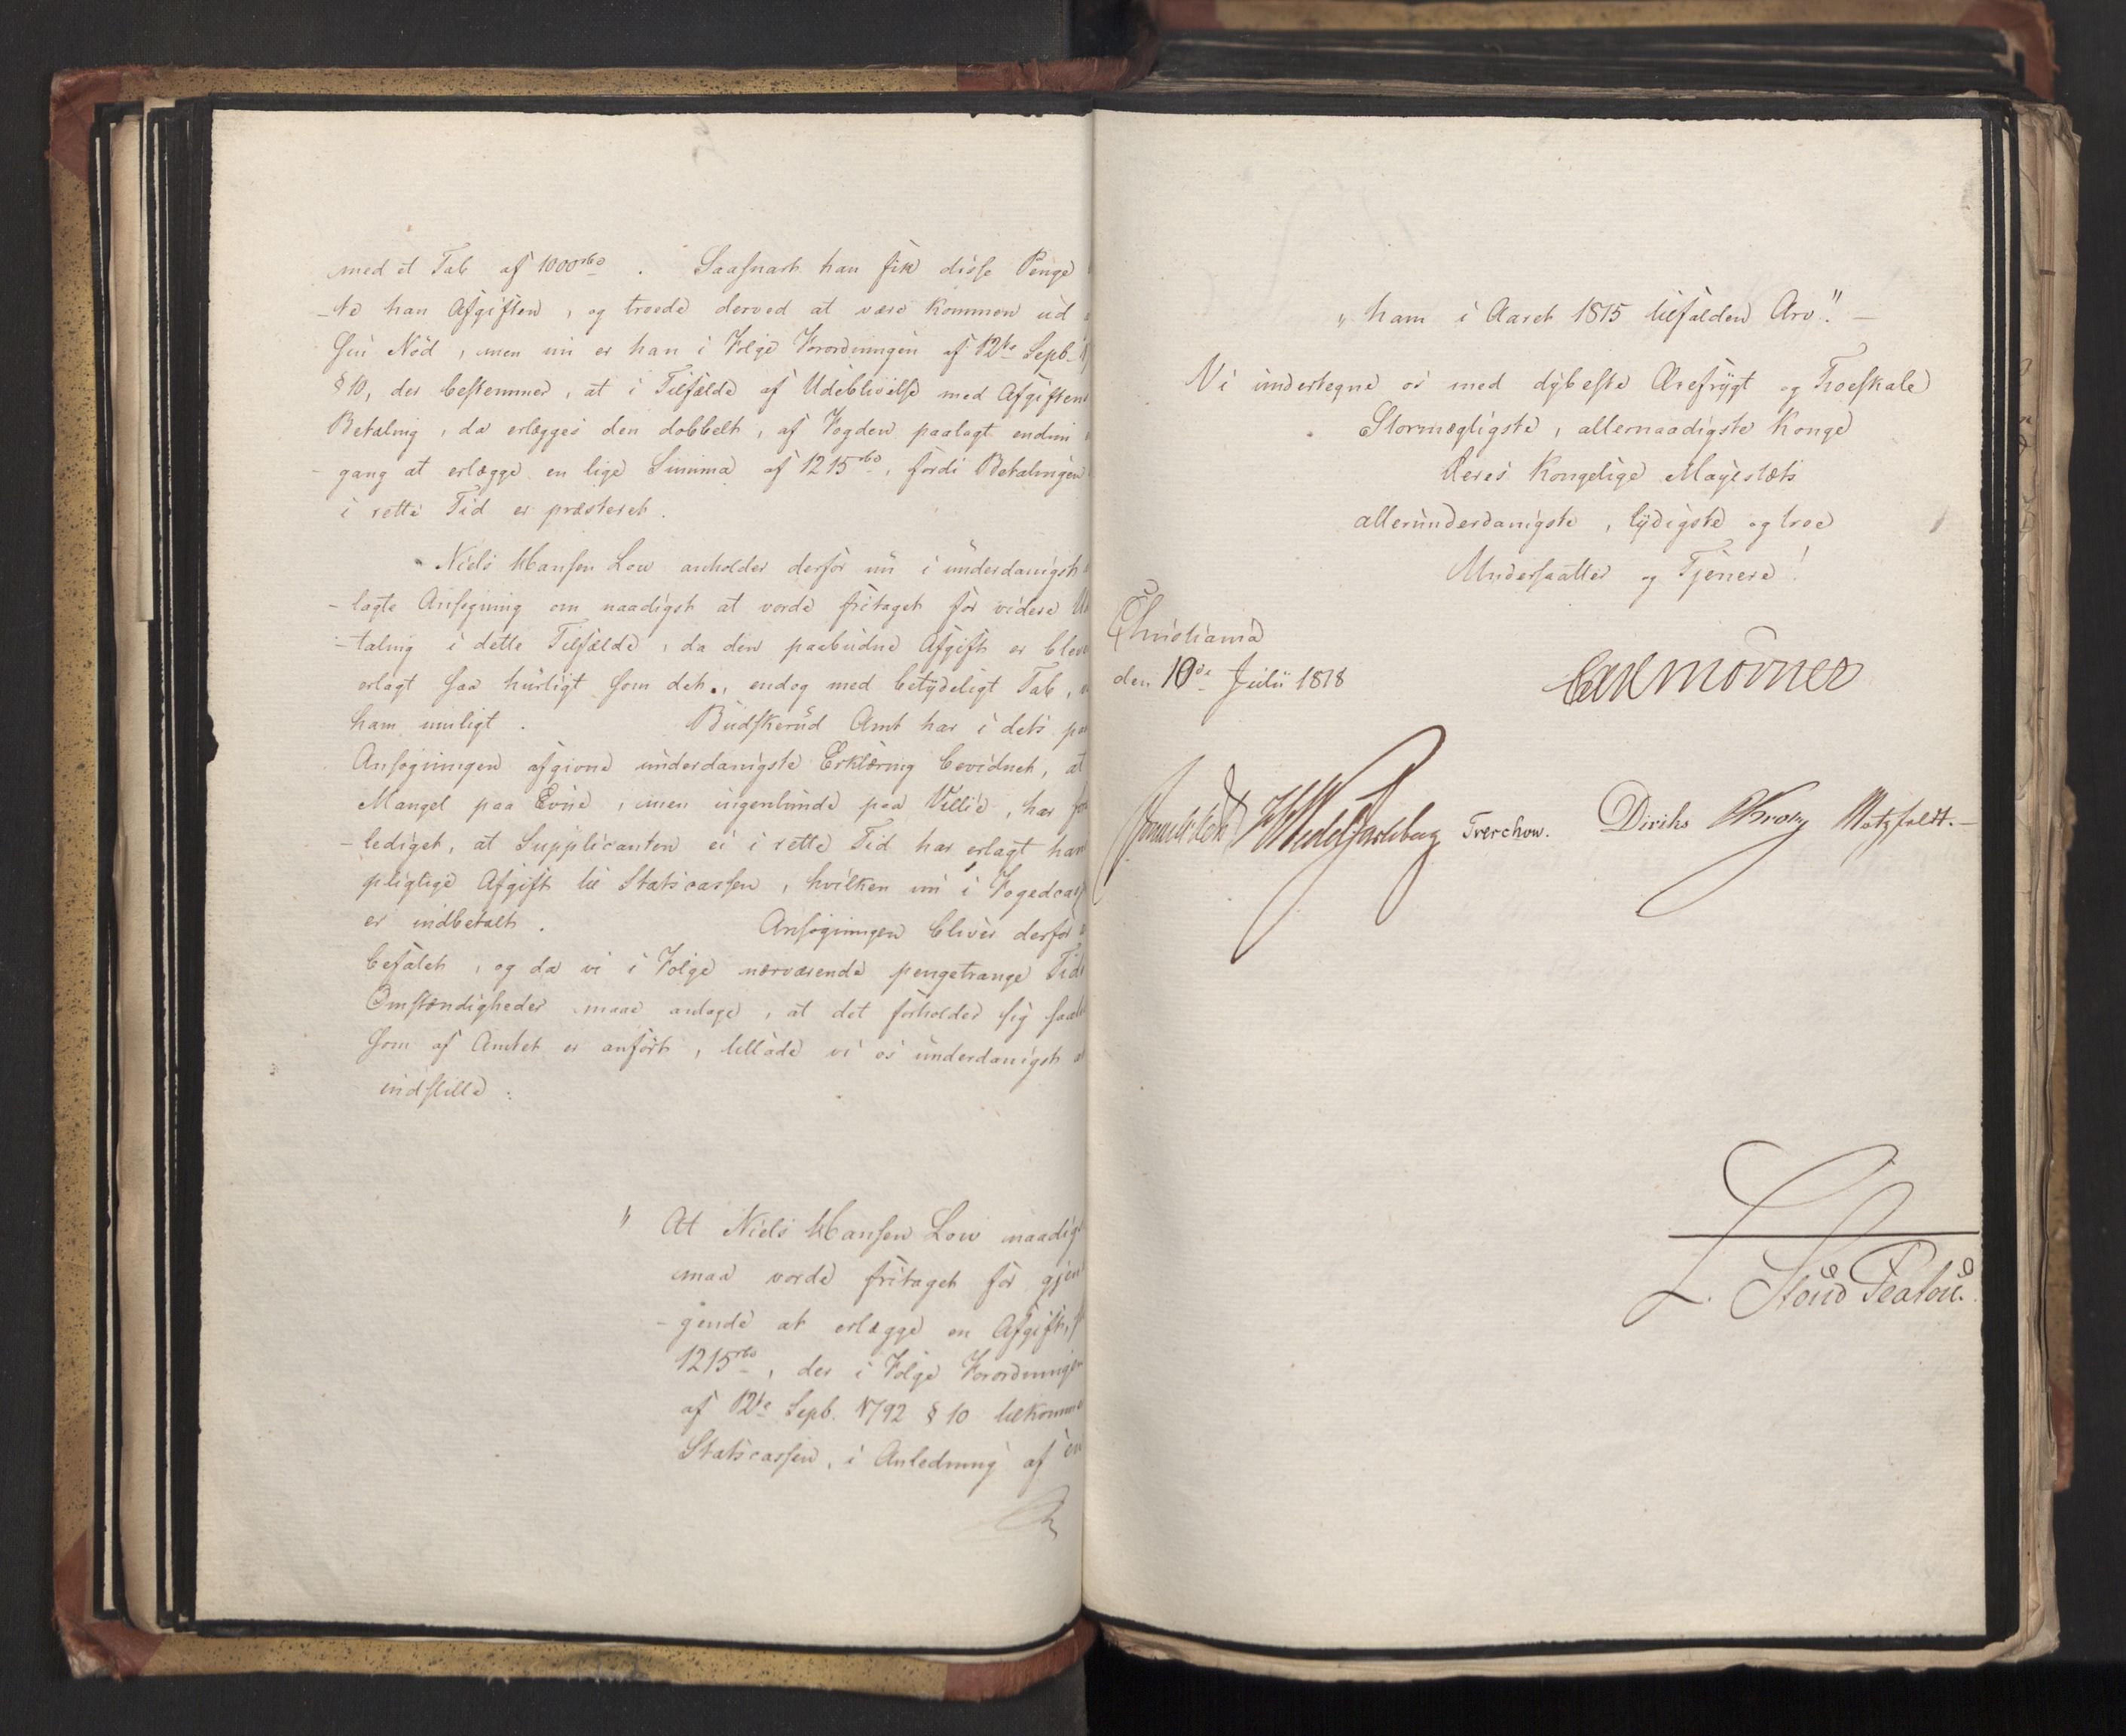 med et Tab af 1000 rbd. Saasnart han fik disse Penge
-te han Afgiften, og troede derved at være kommen ud
sin Nöd, men nu er han i Følge Forordningen af 12te Septb.
§ 10, der bestemmer, at i Tilfælde af Udeblivelse med Afgiftens
Betaling, da erlægges den dobbelt, af Fogden paalagt endnu
gang at erlægge en lige Summa af 1215 rbd, fordi Betalingen
i rette Tid er præsteret.
Niels Hansen Low anholder derfor nu i underdanigst
-lagte Ansøgning om naadigst at vorde fritaget for videre
-taling i dette Tilfælde, da den paabudne Afgift er blev
erlagt saa hurtigt som det, endog med betydeligt Tab,
ham muligt. Budskerud Amt har i dets
Ansøgningen afgivne underdanigste Erklæring bevidnet, at
Mangel paa Evne, men ingenlunde paa Villie, har
-lediget, at Supplicanten ei i rette Tid har erlagt han
pligtige Afgift til Statscassen, hvilken nu i Fogedcas
er indbetalt. Ansøgningen bliver derfor
befalet, og da vi i Følge nærværende pengetrange Tids
Omstændigheder maae antage, at det forholder sig saal
som af Amtet er anført, tillade vi os underdanigst
indstille:
" At Niels Hansen Low naadigst
maa vorde fritaget for gjen
-gende at erlægge en Afgift,
1215 rbd, der i Følge Forordningen
af 12te Sepb. 1792 § 10 tilkomme
Statscassen, i Anledning af en
„ ham i Aaret 1815 tilfalden Arv". —
Vi undertegne os med dybeste Ærefrygt og Troeskab
Stormægtigste, allernaadigste Konge
Deres Kongelige Majestæts
allerunderdanigste, lydigste og troe
Undersaatter og Tjenere!
Christiania
den 10de Julii 1818
Carl Mörner
Sommerhielm HWedelJarlsberg Treschow. Diriks Krohg Motzfeldt.—
L. Stoud Platou.